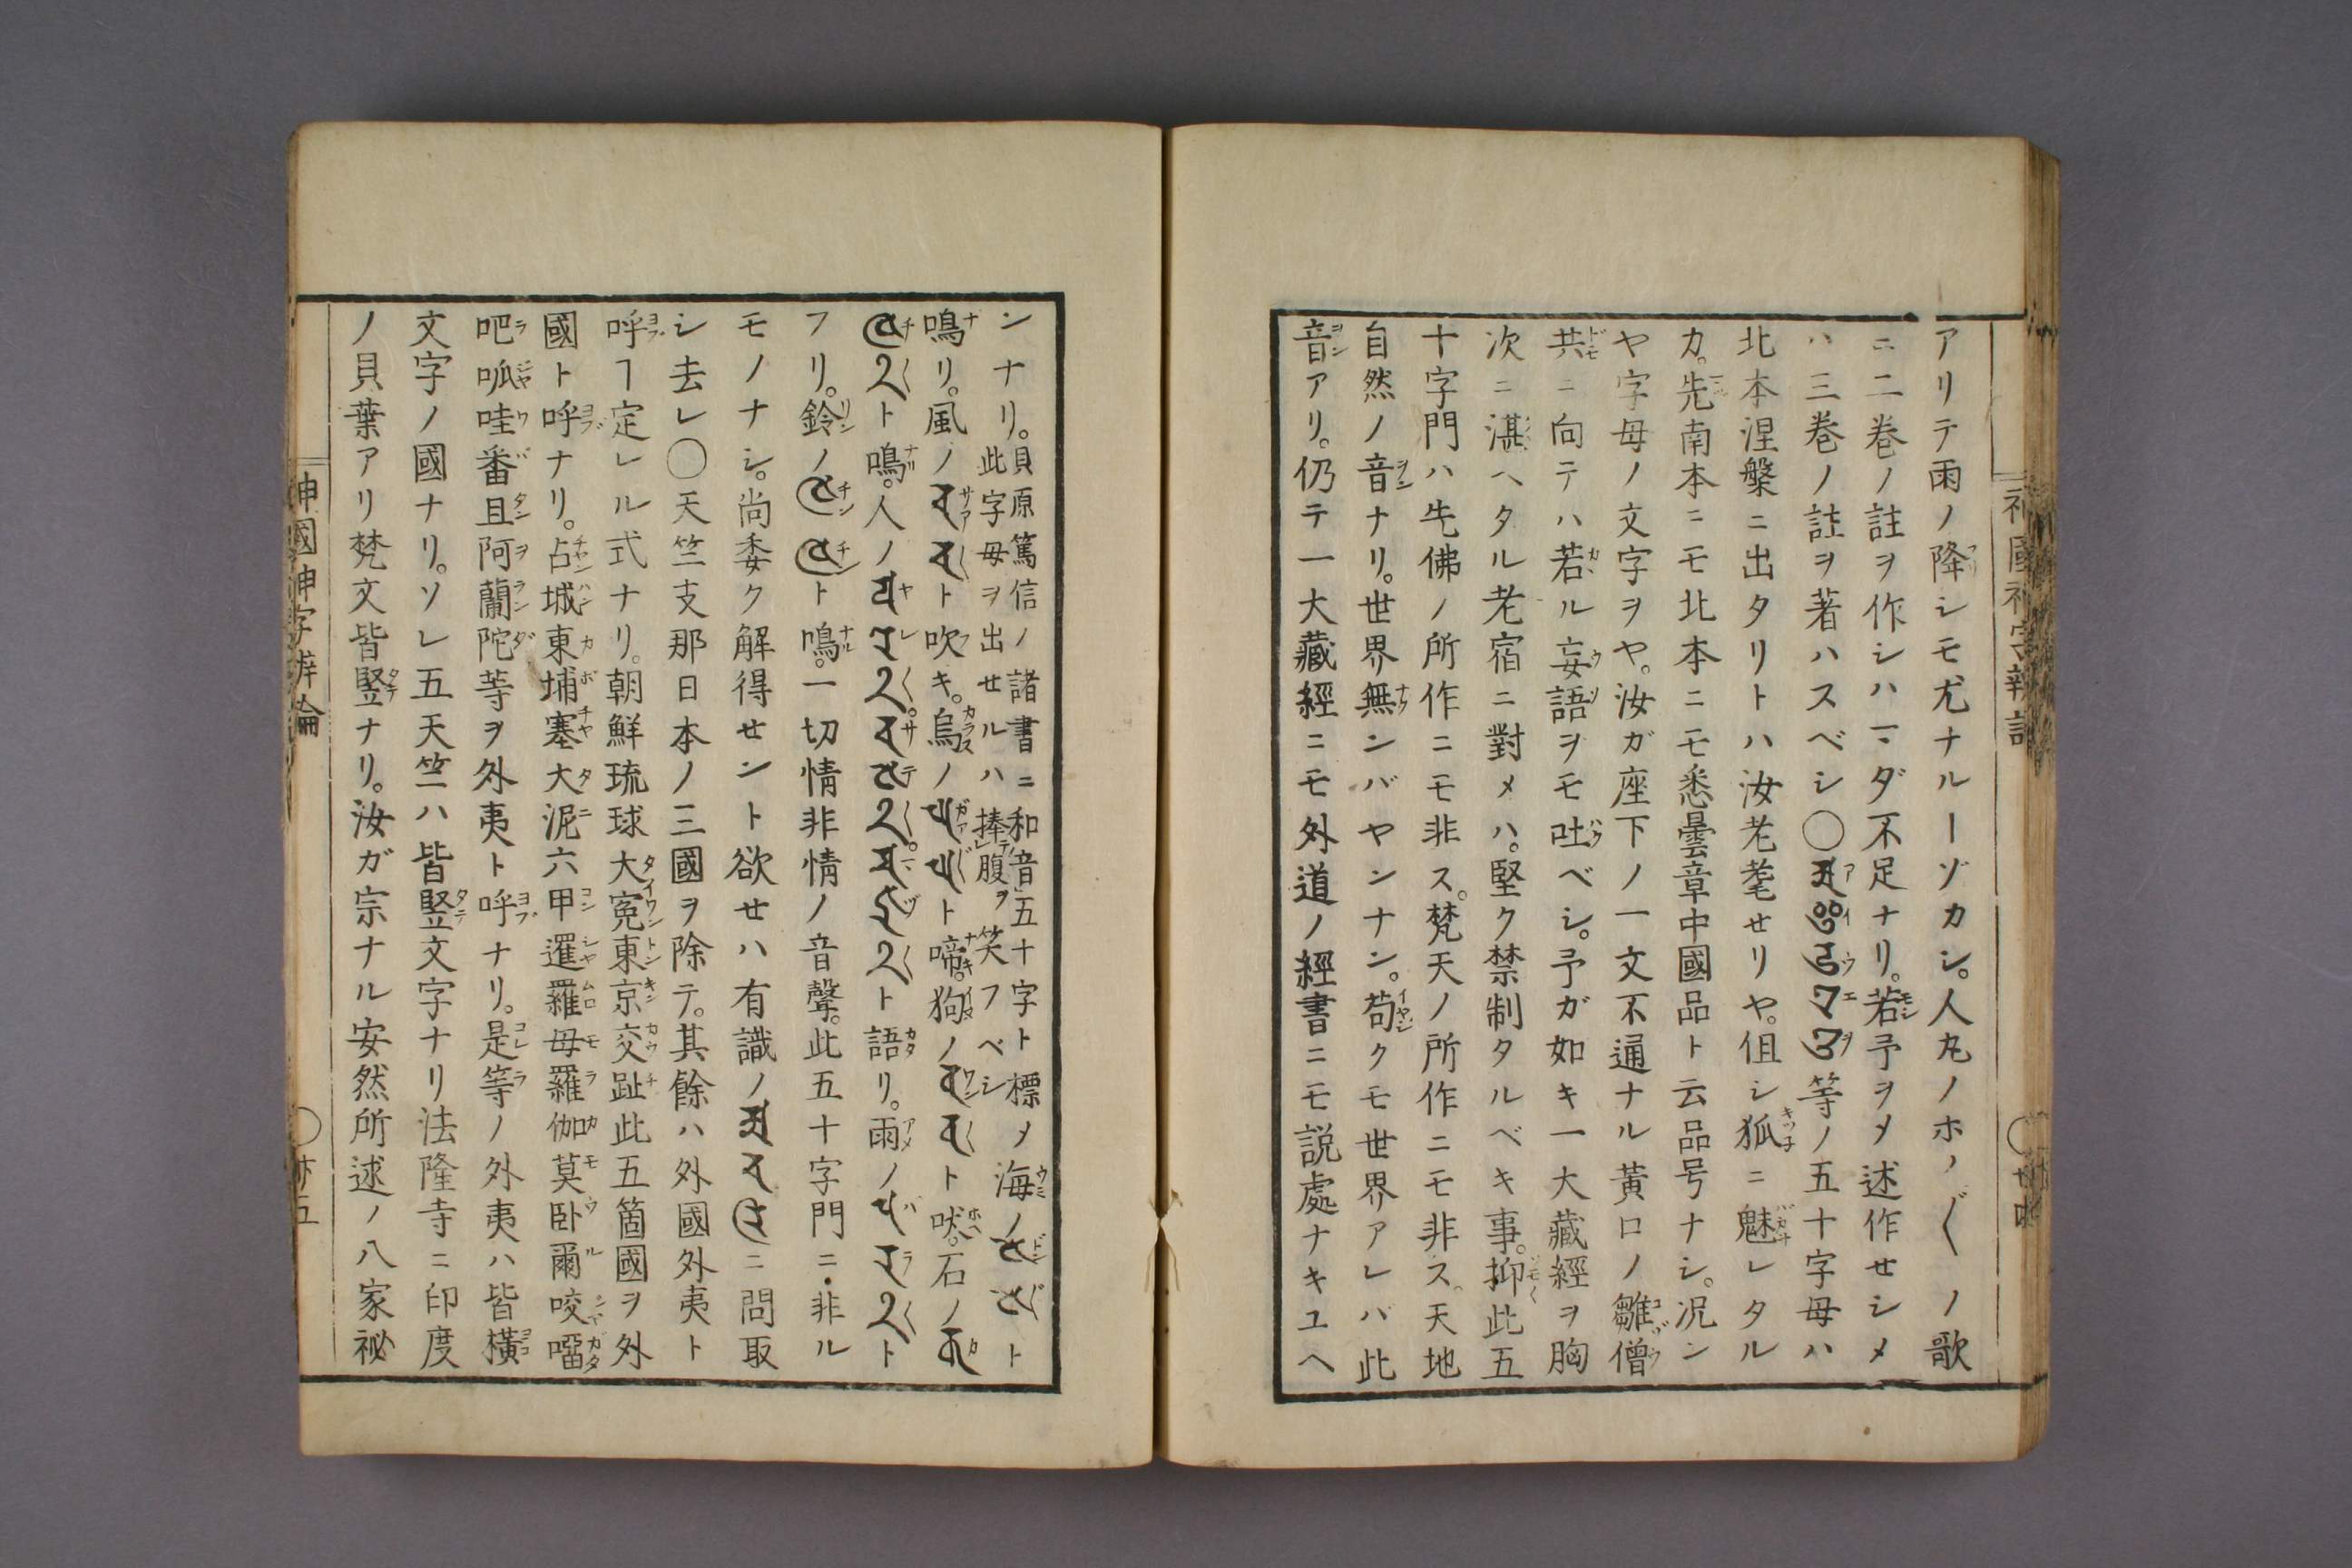 アリテ雨ノ降シモ尤ナルヿゾカシ。人丸ノホノ〴〵ノ歌
ニ二巻ノ註ヲ作シハマダ不足ナリ。若予ヲメ述作せシメ
ハ三巻ノ註ヲ著ハスベシ〇𑖀𑖂𑖄𑖊𑖌等ノ五十字母ハ
北本涅槃ニ出タリトハ汝老耄せリヤ。但シ狐ニ魅レタル
カ。先南本ニモ北本ニモ悉曇章中國品ト云品号ナシ。况ン
ヤ字母ノ文字ヲヤ。汝ガ座下ノ一文不通ナル黄口ノ雛僧
共ニ向テハ若ル妄語ヲモ吐ベシ。予ガ如キ一大藏經ヲ胸
次ニ湛ヘタル老宿ニ對メハ。堅ク禁制タルベキ事。抑此五
十字門ハ先佛ノ所作ニモ非ス。梵天ノ所作ニモ非ス。天地
自然ノ音ナリ。世界無ンバヤンナン。苟クモ世界アレバ此
音アリ。仍テ一大藏經ニモ外道ノ經書ニモ説處ナキユヘ
ンナリ。貝原篤信ノ諸書ニ和音五十字ト標メ
此字母ヲ出せルハ捧腹ヲ笑フベシ
海ノ ト
鳴リ。風ノ ト吹キ。烏ノ ト啼。狗ノ ト吠。石ノ
ト鳴。人ノ ト語リ。雨ノ ト
フリ。鈴ノ ト鳴。一切情非情ノ音聲。此五十字門ニ非ル
モノナシ。尚委ク解得せント欲せハ有識ノ ニ問取
シ去レ〇天竺支那日本ノ三國ヲ除テ。其餘ハ外國外夷ト
呼ヿ定レル式ナリ。朝鮮琉球大寃東京交趾此五箇國ヲ外
國ト呼ナリ。占城東埔塞大泥六甲暹羅母羅伽莫臥爾咬𠺕
吧呱哇番旦阿蘭陀等ヲ外夷ト呼ナリ。是等ノ外夷ハ皆横
文字ノ國ナリ。ソレ五天竺ハ皆竪文字ナリ法隆寺ニ印度
ノ貝葉アリ梵文皆竪ナリ。汝ガ宗ナル安然所述ノ八家祕
神國神字辨論
〇廿五